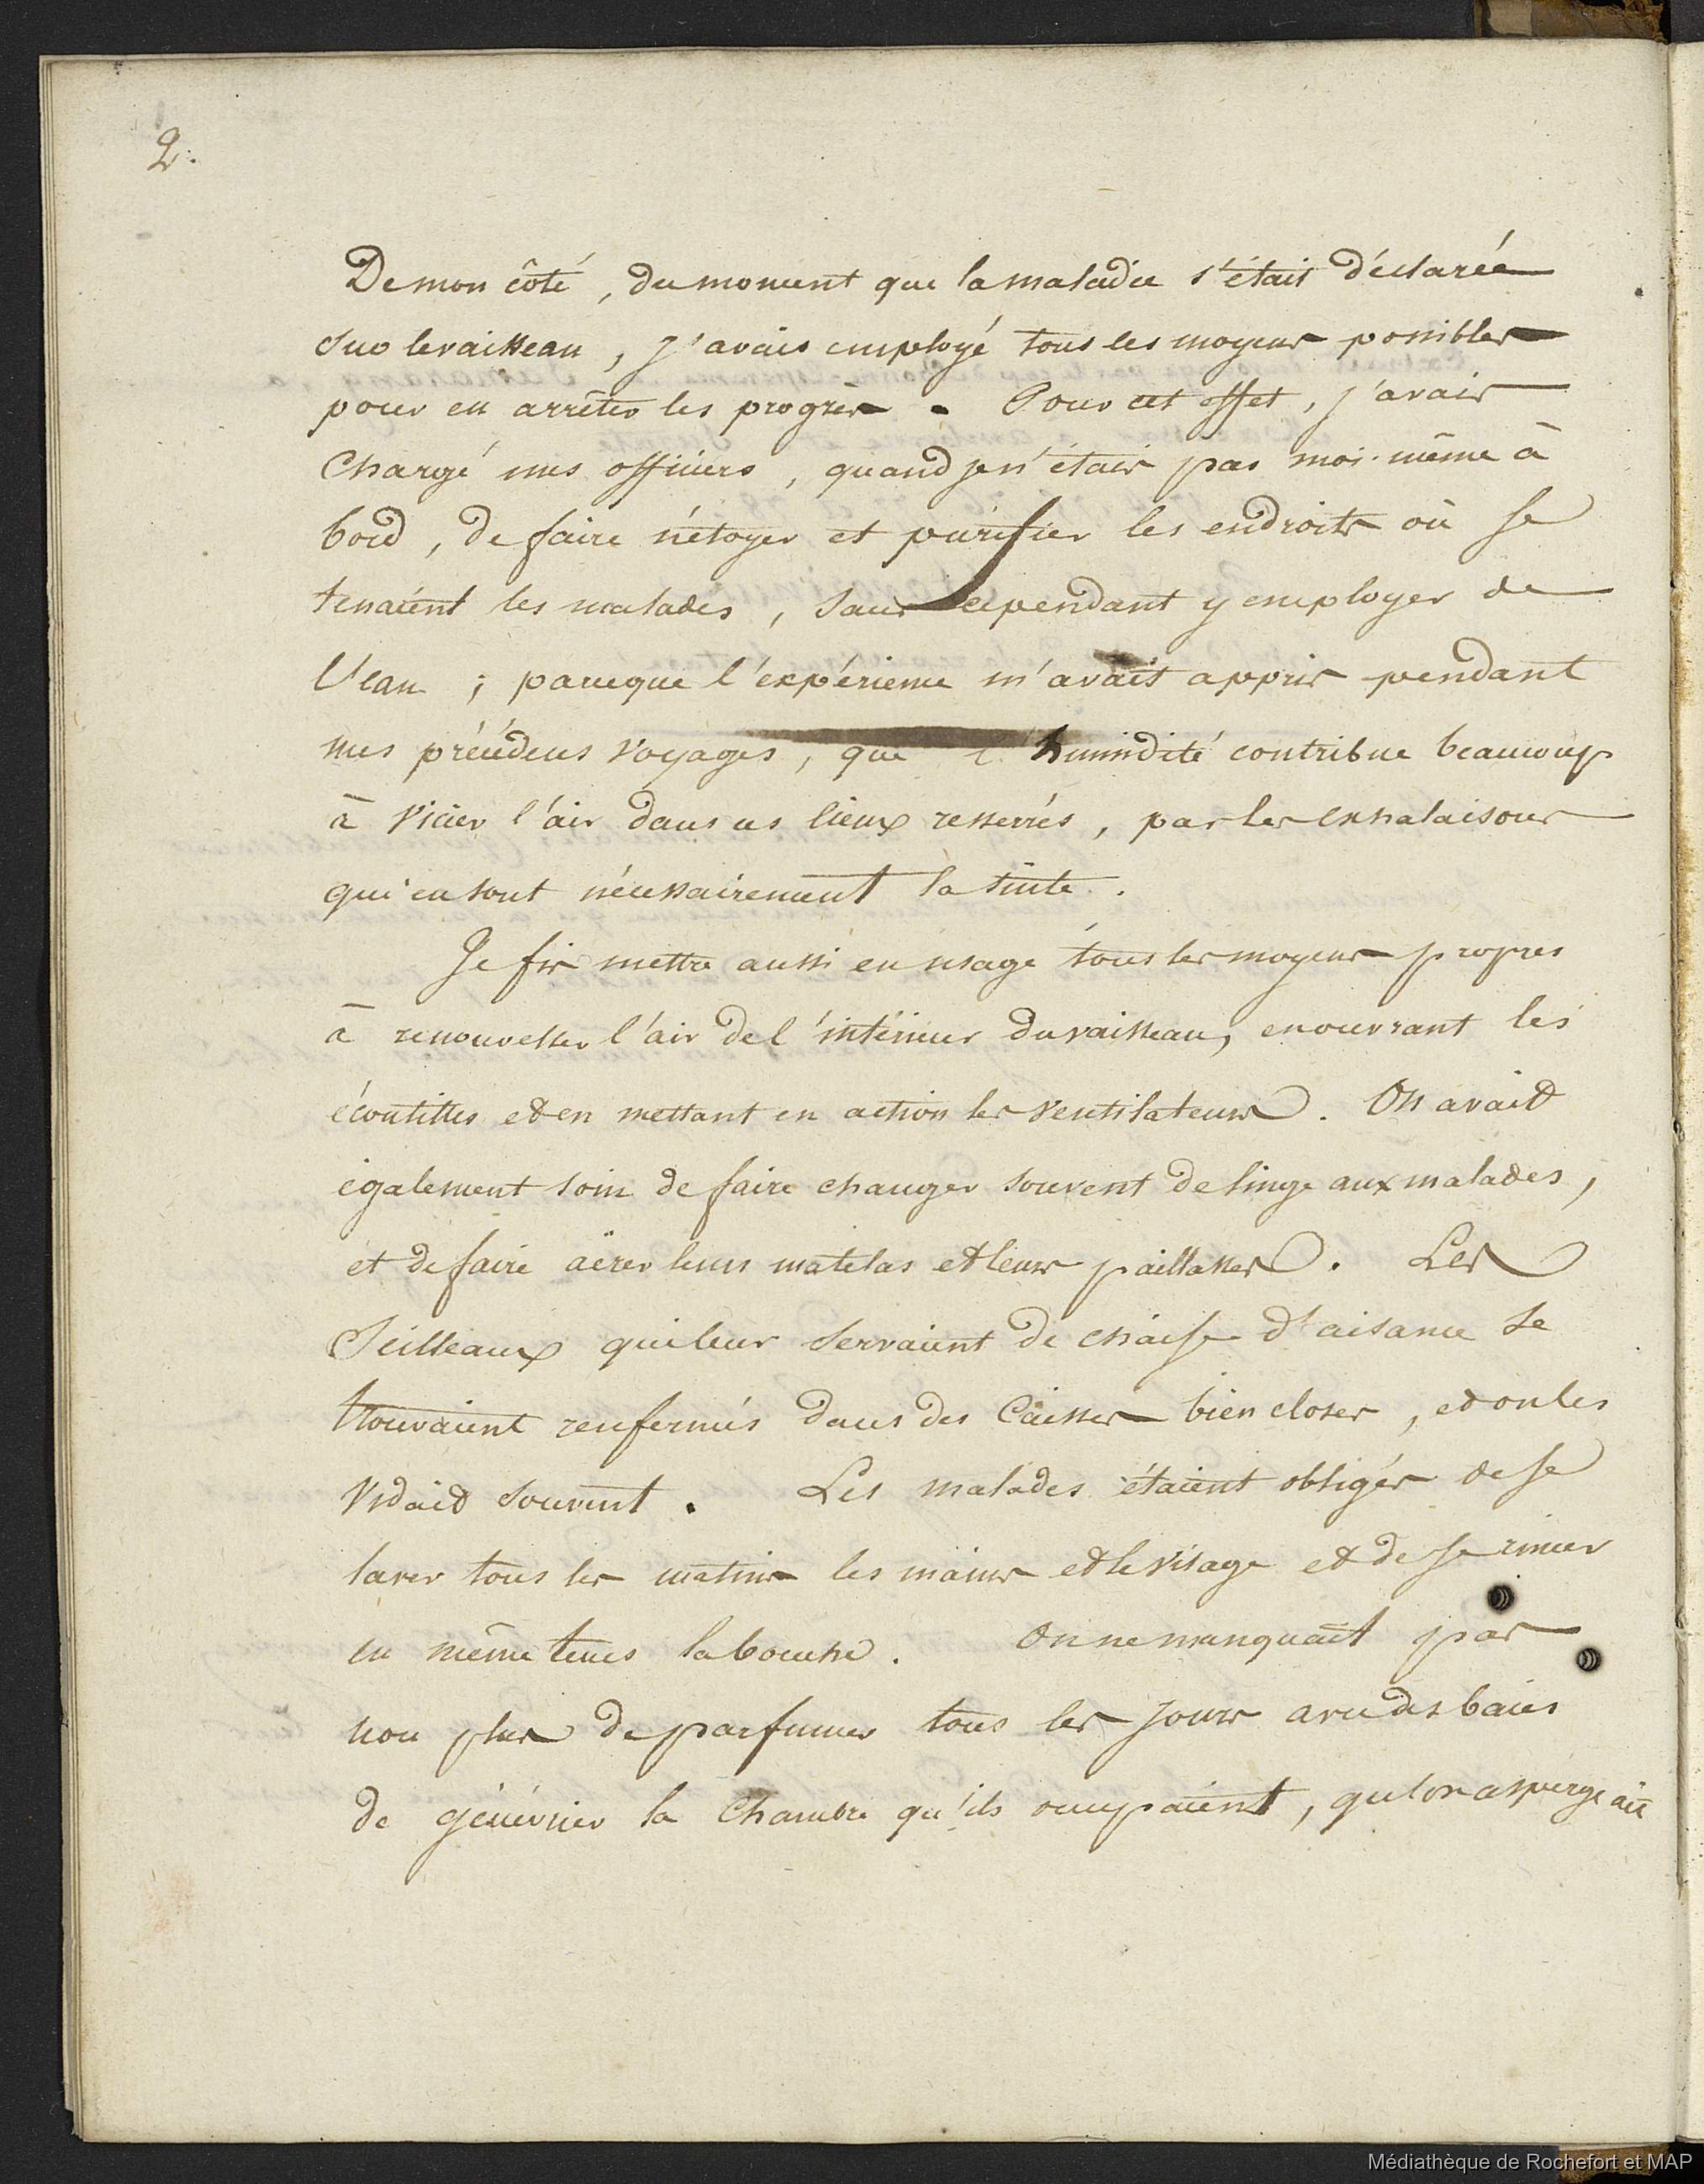 2.
De mon côté, du moment que la maladie s'était déclarée
sur le vaisseau, j'avais employé tous les moyens possibles
pour en arrêter les progrès. Pour cet effet, j'avais
chargé mes officiers, quand je n'étais pas moi-même à
bord, de faire nétoyer et purifier les endroits où se
tenaient les malades, sans cependant y employer de
l'eau; parceque l'expérience m'avait appris pendant
mes précédens voyages, que l'humidité contribue beaucoup
à vicier l'air dans ces lieux resserrés, par les exhalaisons
qui en sont nécessairement la suite.
Je fis mettre aussi en usage tous les moyens propres
à renouveller l'air de l'intérieur du vaisseau, en ouvrant les
écoutilles et en mettant en action les ventilateurs. On avait
également soin de faire changer souvent de linge aux malades,
et de faire aërer leurs matelas et leurs paillasses. Les
Seilleaux qui leur servaient de chaise d'aisance se
trouvaient renfermés dans des caisses bien closes, et on les
vidait souvent. Les malades étaient obligés de se
laver tous les matins les mains et le visage et de se rincer
en même tems la bouche. On ne manquait pas
non plus de parfumer tous les jours avec des baies
de génévrier la chambre qu'ils occupaient, qu'on aspergeait
Médiathèque de Rochefort et MAP